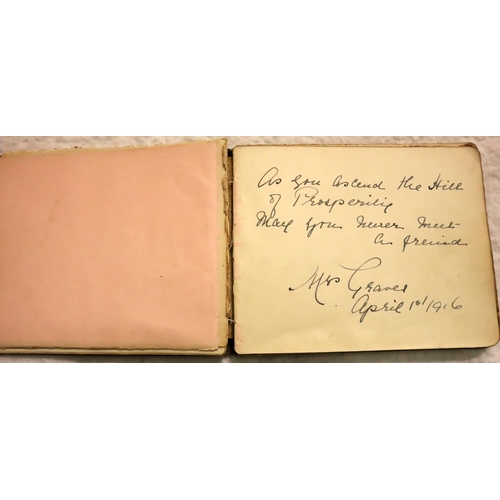 As you ascend the Hill
of Prosperity
May you never meet
a freind
Mrs Graves
April 1st 1916